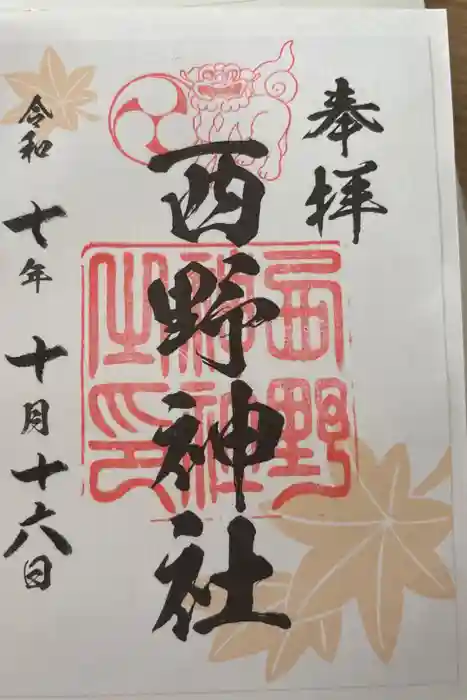 奉拝
西野神社
西野
神社
之印
令和七年十月十六日